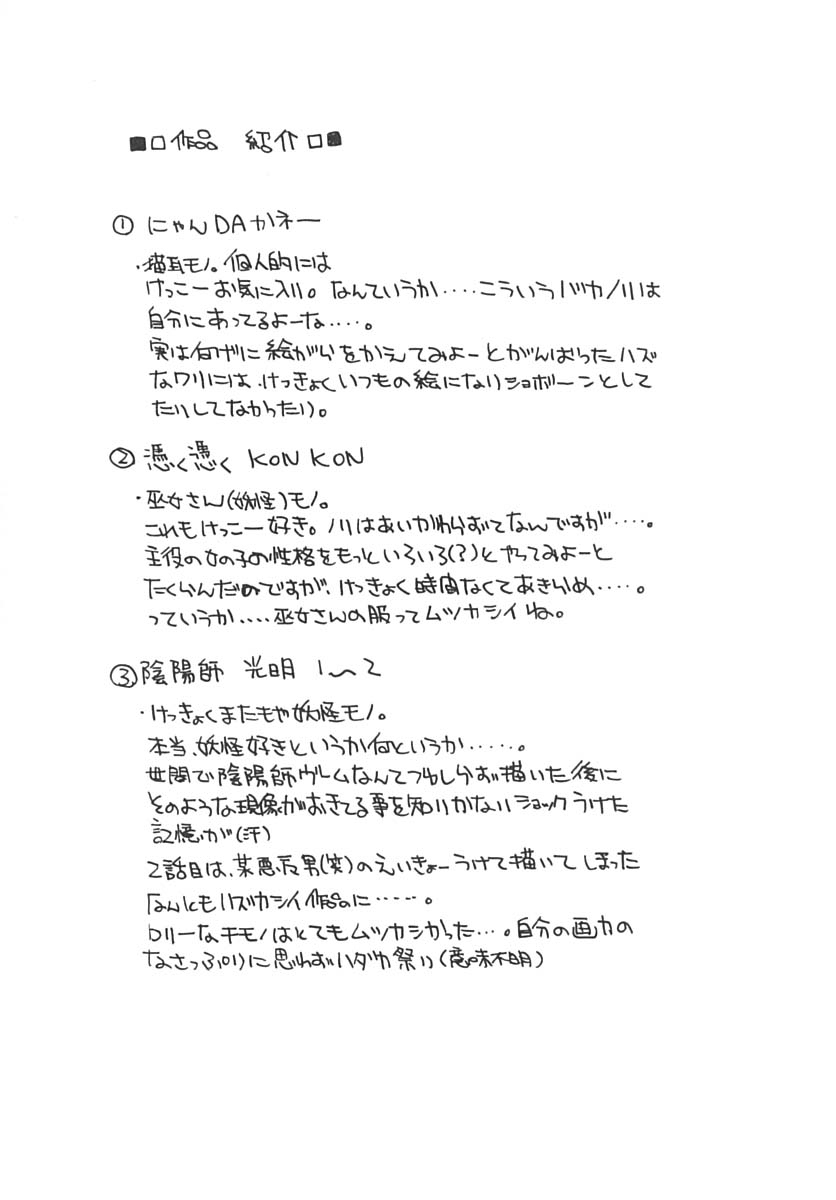 ■□作品 紹介□■
① にゃんDAかネー
・猫耳モノ。個人的には
けっこーお気に入り。なんていうか‥‥こういうバカノリは
自分にあってるよーな‥‥。
実は何げに絵がらをかえてみよーとがんばったハズ
なワリには、けっきょくいつもの絵になりショボーンとして
たりしてなかったり。
② 憑く憑く KON KON
・巫女さん(妖怪)モノ。
これもけっこー好き。ノリはあいかわらずてなんですが‥‥。
主役の女の子の性格をもっといろいろ(?)とやってみよーと
たくらんだのですが、けっきょく時間なくてあきらめ‥‥。
っていうか‥‥巫女さんの服ってムツカシイね。
③ 陰陽師 光明 1〜2
・けっきょくまたもや妖怪モノ。
本当、妖怪好きというか何というか‥‥‥。
世間で陰陽師ヴームなんてつゆしらず描いた後に
そのような現象がおきてる事を知りかなりショックうけた
記憶が(汗)
2話目は、某悪友男(笑)のえいきょーうけて描いてしまった
なんともハズカシイ作品に‥‥‥。
ロリーなチモノはとてもムツカシかった‥‥。自分の画力の
なさっぷりに思わずハダカ祭り(意味不明)